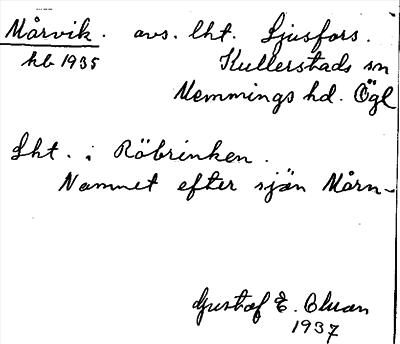 Mårvik. avs. lht. Ljusfors.
kb 1935 Kullerstads sn
Memmings hd. Ögl
Lht. i Röbrinken.
Namnet efter sjön Mårn-
Gustaf E. Cluan
1937